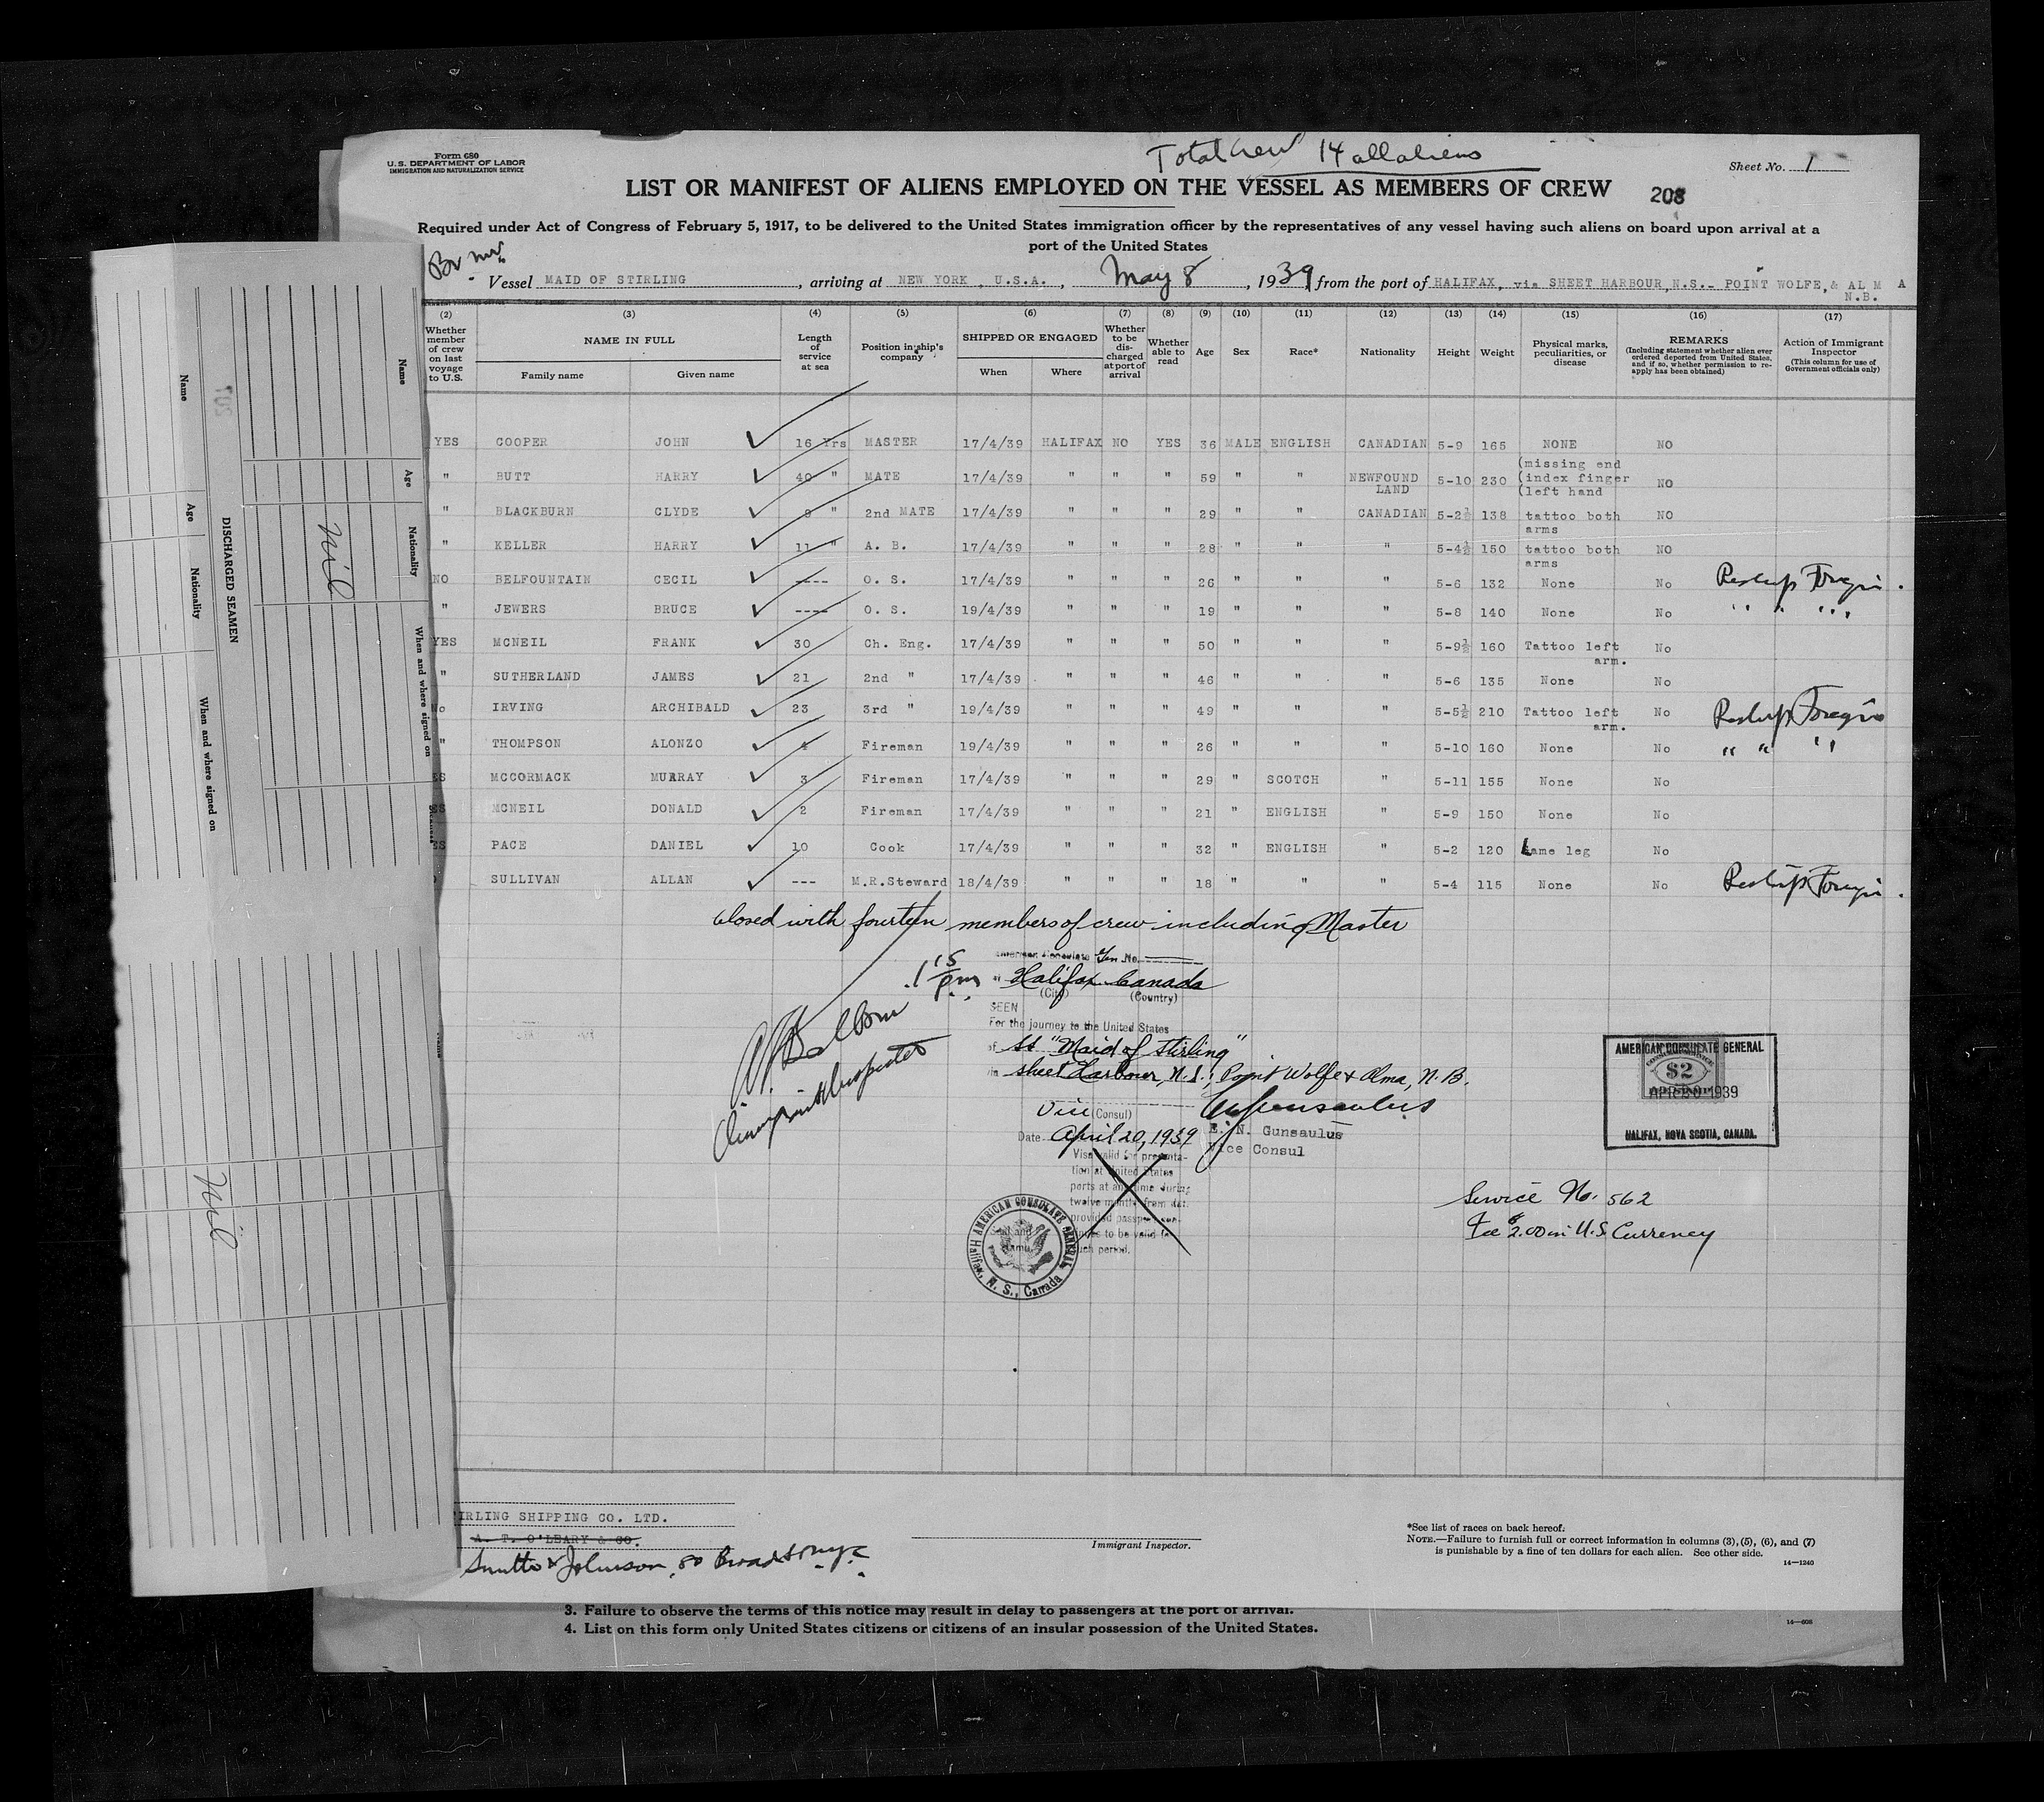 Form 680
U. S. DEPARTMENT OF LABOR
IMMIGRATION AND NATURALIZATION SERVICE
Total crew 14 all aliens
Sheet No. 1
LIST OR MANIFEST OF ALIENS EMPLOYED ON THE VESSEL AS MEMBERS OF CREW
208
Required under Act of Congress of February 5, 1917, to be delivered to the United States immigration officer by the representatives of any vessel having such aliens on board upon arrival at a
port of the United States
Vessel MAID OF STIRLING, arriving at NEW YORK, U.S.A., May 8, 1939 from the port of HALIFAX, via SHEET HARBOUR, N.S.- POINT WOLFE, & AL M A
N.B.
(2) (3) (4) (5) (6) (7) (8) (9) (10) (11) (12) (13) (14) (15) (16) (17)
Whether member of crew on last voyage to U.S.
NAME IN FULL
Family name Given name
Length of service at sea
Position in ship's company
SHIPPED OR ENGAGED
When Where
Whether to be discharged at port of arrival
Whether able to read
Age Sex Race* Nationality Height Weight
Physical marks, peculiarities, or disease
REMARKS
(Including statement whether alien ever ordered deported from United States, and if so, whether permission to reapply has been obtained)
Action of Immigrant Inspector
(This column for use of Government officials only)
YES COOPER JOHN 16 Yrs MASTER 17/4/39 HALIFAX NO YES 36 MALE ENGLISH CANADIAN 5-9 165 NONE NO
" BUTT HARRY 40 " MATE 17/4/39 " " " 59 " " NEWFOUND LAND 5-10 230 (missing end (index finger (left hand NO
" BLACKBURN CLYDE 8 " 2nd MATE 17/4/39 " " " 29 " " CANADIAN 5-2½ 138 tattoo both arms NO
" KELLER HARRY 11 " A. B. 17/4/39 " " " 28 " " " 5-4½ 150 tattoo both arms NO
NO BELFOUNTAIN CECIL ---- O. S. 17/4/39 " " " 26 " " " 5-6 132 None No Reship Foreign.
" JEWERS BRUCE ---- O. S. 19/4/39 " " " 19 " " " 5-8 140 None No " " "
YES MCNEIL FRANK 30 Ch. Eng. 17/4/39 " " " 50 " " " 5-9½ 160 Tattoo left arm. No
" SUTHERLAND JAMES 21 2nd " 17/4/39 " " " 46 " " " 5-6 135 None No
No IRVING ARCHIBALD 23 3rd " 19/4/39 " " " 49 " " " 5-5½ 210 Tattoo left arm. No Reship Foreign
" THOMPSON ALONZO 4 Fireman 19/4/39 " " " 26 " " " 5-10 160 None No " " "
ES MCCORMACK MURRAY 3 Fireman 17/4/39 " " " 29 " SCOTCH " 5-11 155 None No
ES MCNEIL DONALD 2 Fireman 17/4/39 " " " 21 " ENGLISH " 5-9 150 None No
ES PACE DANIEL 10 Cook 17/4/39 " " " 32 " ENGLISH " 5-2 120 Lame leg No
SULLIVAN ALLAN --- M.R.Steward 18/4/39 " " " 18 " " " 5-4 115 None No Reship Foreign.
Closed with fourteen members of crew including Master
1 15 pm
American Consulate Gen No.
at Halifax Canada
(City) (Country)
SEEN
For the journey to the United States
of SS "Maid of Stirling"
via Sheet Harbour, N.S.; Point Wolfe & Alma, N.B.
Vice (Consul)
E. N. Gunsaulus
Vice Consul
Date April 20, 1939
Visa valid for presenta-
tion at United States
ports at any time during
twelve months from date
provided passport con-
tinues to be valid for
such period.
AMERICAN CONSULATE GENERAL
Halifax, N. S., Canada
Immigrant Inspector
AMERICAN CONSULATE GENERAL
$2
APR 20 1939
HALIFAX, NOVA SCOTIA, CANADA.
Service No. 562
Fee $2.00 in U.S. Currency
IRLING SHIPPING CO. LTD.
A. T. O'LEARY & CO.
Johnson, 80 Broad St NYC
Immigrant Inspector.
*See list of races on back hereof.
NOTE.—Failure to furnish full or correct information in columns (3), (5), (6), and (7)
is punishable by a fine of ten dollars for each alien. See other side.
14—1240
3. Failure to observe the terms of this notice may result in delay to passengers at the port of arrival.
4. List on this form only United States citizens or citizens of an insular possession of the United States.
14—608
Name Age Nationality When and where signed on
Nil
DISCHARGED SEAMEN
Name Age Nationality When and where signed on
Nil